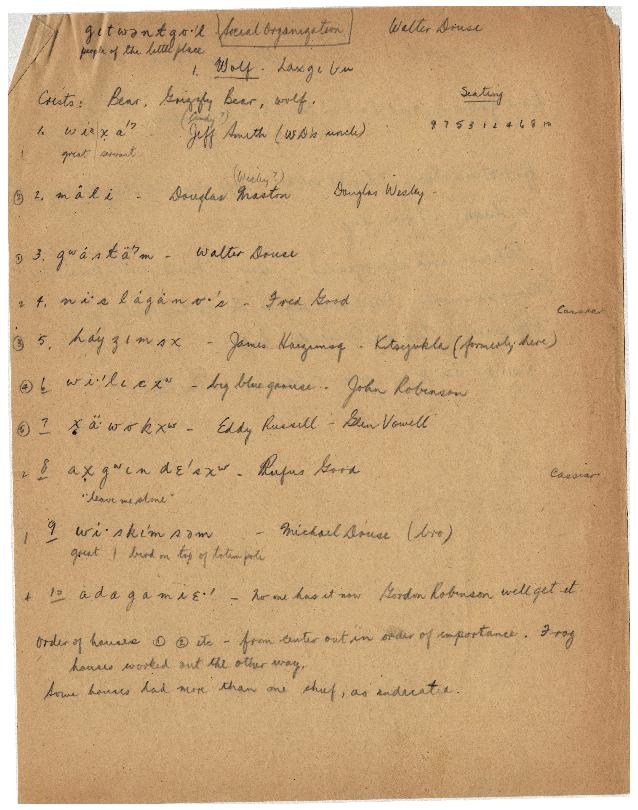 gitwəntgo·'l Social Organization Walter Douse
people of the little place
1. Wolf. Laxgibu
Crests: Bear, Grizzly Bear, wolf.
Seating
9 7 5 3 1 2 4 6 8 10
1. wi·xa'? Jeff Smith (WD's uncle)
great / servant
1
(Wesley?)
② 2. máli - Douglas Maston Douglas Wesley -
① 3. gʷástä'?m - Walter Douse
2 4. ni·slágáno·'s - Fred Good Cassiar
③ 5. háyzimsx - James Haizimsq - Kitseyukla (formerly here)
④ 6 wi·'licxʷ - big blue grouse - John Robinson
⑤ 7 x̣ä·wokxʷ - Eddy Russell - Glen Vowell
2 8 ax̣gʷındɛ'sxʷ - Rufus Good Cassiar
"leave me alone"
1 9 wi·skímsəm - Michael Douse (bro)
great / bird on top of totem pole
4 10 adagamiɛ·' - no one has it now Gordon Robinson will get it
Order of houses ① ② etc - from center out in order of importance. Frog
houses worked out the other way.
Some houses had more than one chief, as indicated.